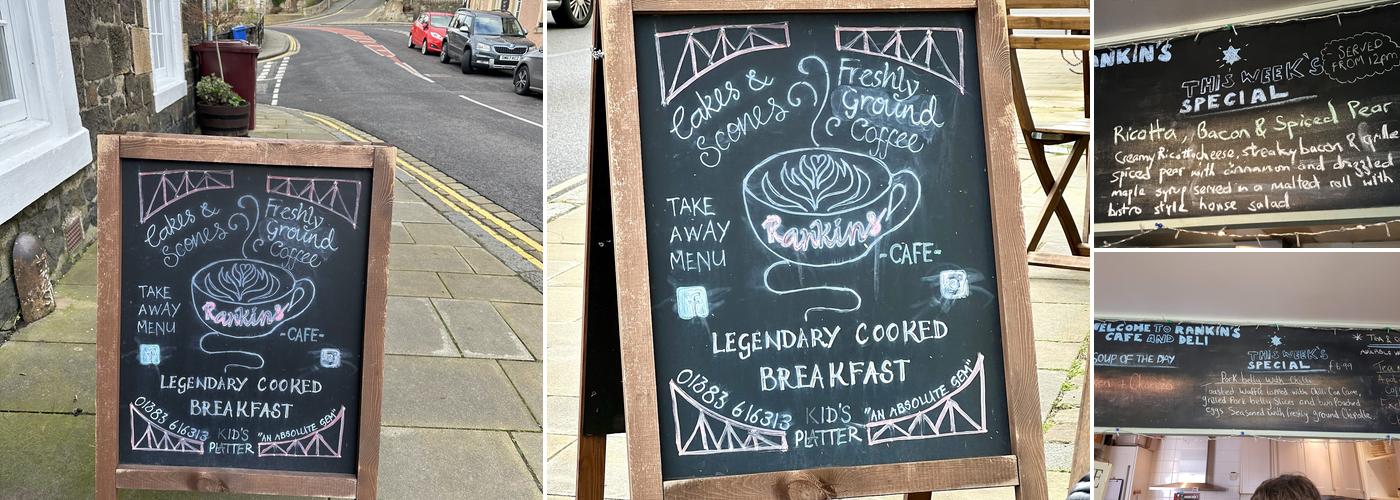 Cakes &
Scones
Freshly
Ground
Coffee
TAKE
AWAY
MENU
Rankins
-CAFE-
LEGENDARY COOKED
BREAKFAST
01383 616313
KID'S
PLATTER
"AN ABSOLUTE GEM"
Cakes &
Scones
Freshly
Ground
Coffee
TAKE
AWAY
MENU
Rankins
-CAFE-
LEGENDARY COOKED
BREAKFAST
01383 616313
KID'S
PLATTER
"AN ABSOLUTE GEM"
ANKIN'S
THIS WEEK'S
SPECIAL
SERVED
FROM 12pm
Ricotta, Bacon & Spiced Pear
Creamy Ricotta cheese, steaky bacon & grille
spiced pear with cinnamon and drizzled
maple syrup served in a malted roll with
bistro style house salad
WELCOME TO RANKIN'S
CAFE AND DELI
SOUP OF THE DAY
THIS WEEK'S
SPECIAL £6.99
Pork belly with Chilli
toasted Waffle topped with Chilli Con Carne,
grilled Pork belly slices and two Poached
eggs. Seasoned with freshly ground Chipotle